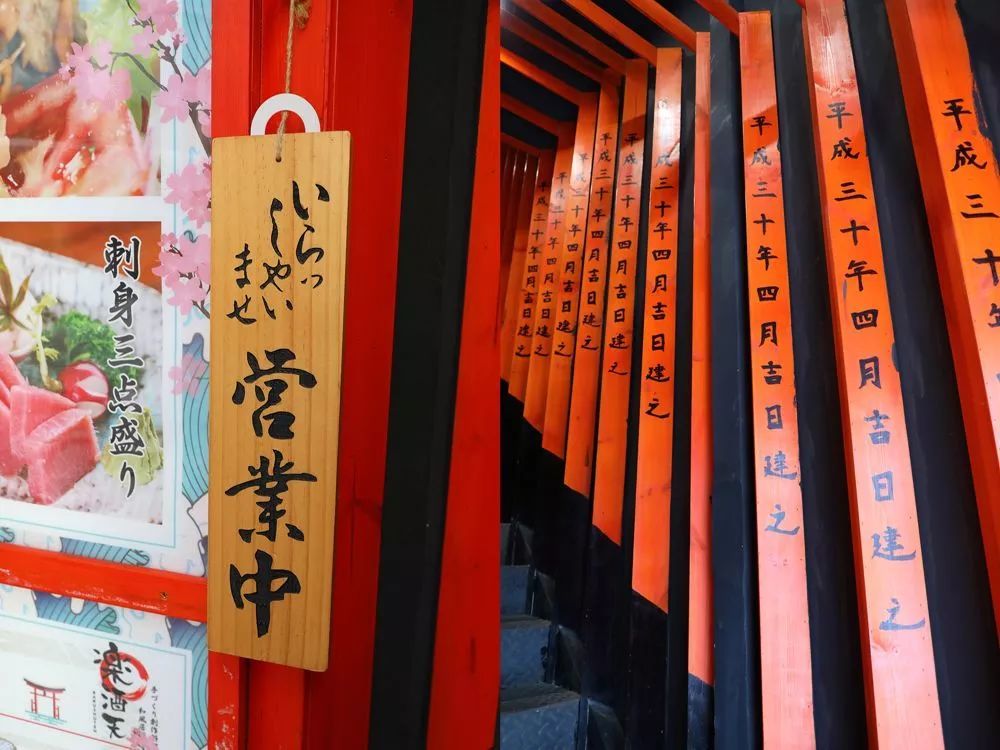 刺身三点盛り
いらっ
しゃい
ませ
営業中
楽酒天
RAKUSHUTEN
平成三十年四月吉日建之
平成三十年四月吉日建之
平成三十年四月吉日建之
平成三十年四月吉日建之
平成三十年四月吉日建之
平成三十年四月吉日建之
平成三十年四月吉日建之
平成三十年四月吉日建之
平成三十年四月吉日建之
平成三十年